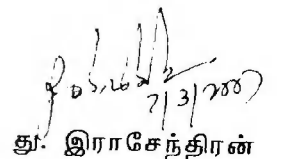 7/3/2000
து. இராசேந்திரன்